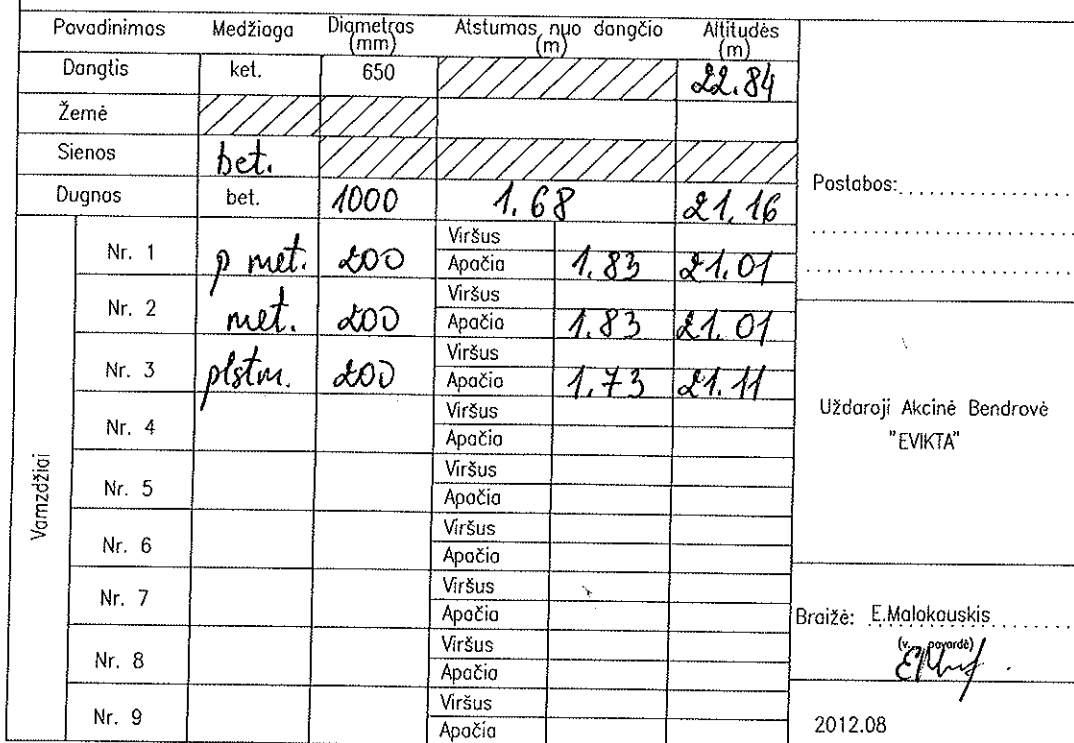 Pavadinimas Medžiaga Diametras (mm) Atstumas nuo dangčio (m) Altitudės (m)
Dangtis ket. 650 22.84
Žemė
Sienos bet.
Dugnas bet. 1000 1.68 21.16
Vamzdžiai
Nr. 1 p met. 200 Viršus
Apačia 1.83 21.01
Nr. 2 met. 200 Viršus
Apačia 1.83 21.01
Nr. 3 plstm. 200 Viršus
Apačia 1.73 21.11
Nr. 4 Viršus
Apačia
Nr. 5 Viršus
Apačia
Nr. 6 Viršus
Apačia
Nr. 7 Viršus
Apačia
Nr. 8 Viršus
Apačia
Nr. 9 Viršus
Apačia
Pastabos:
Uždaroji Akcinė Bendrovė
"EVIKTA"
Braižė: E.Malakauskis
(v. pavardė)
2012.08